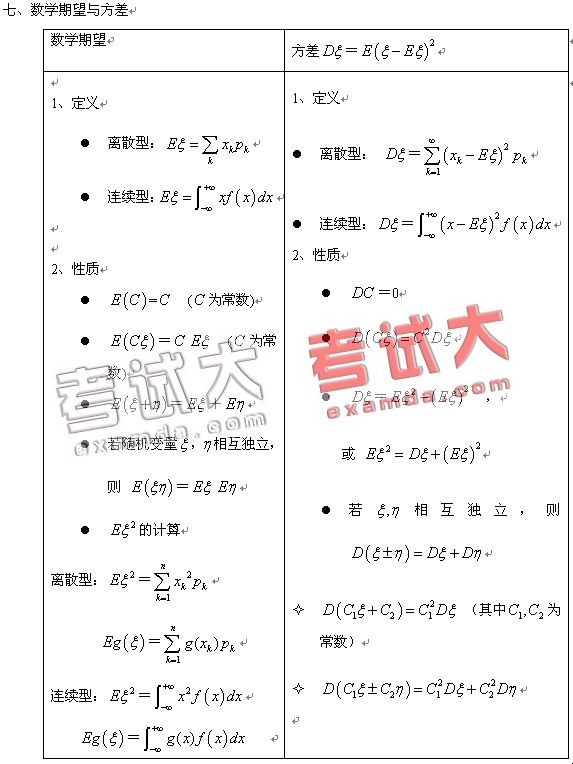 七、数学期望与方差
数学期望
1、定义
● 离散型：Eξ=∑_k x_k p_k
● 连续型：Eξ=∫_{-∞}^{+∞} xf(x)dx
2、性质
● E(C)=C （C为常数)
● E(Cξ)=C Eξ （C 为常
数)
● E(ξ+η)=Eξ+Eη
● 若随机变量ξ，η相互独立，
则 E(ξη)=Eξ Eη
● Eξ²的计算
离散型：Eξ²=∑_{k=1}^{n} x_k² p_k
Eg(ξ)=∑_{k=1}^{n} g(x_k)p_k
连续型：Eξ²=∫_{-∞}^{+∞} x² f(x)dx
Eg(ξ)=∫_{-∞}^{+∞} g(x)f(x)dx
方差 Dξ=E(ξ-Eξ)²
1、定义
● 离散型： Dξ=∑_{k=1}^{∞} (x_k-Eξ)² p_k
● 连续型：Dξ=∫_{-∞}^{+∞} (x-Eξ)² f(x)dx
2、性质
● DC=0
● D(Cξ)=C²Dξ
● Dξ=Eξ²-(Eξ)² ，
或 Eξ²=Dξ+(Eξ)²
● 若 ξ,η 相互独立，则
D(ξ±η)=Dξ+Dη
✧ D(C₁ξ+C₂)=C₁²Dξ （其中C₁,C₂为
常数）
✧ D(C₁ξ±C₂η)=C₁²Dξ+C₂²Dη
考试大
examda.com
考试大
examda.com